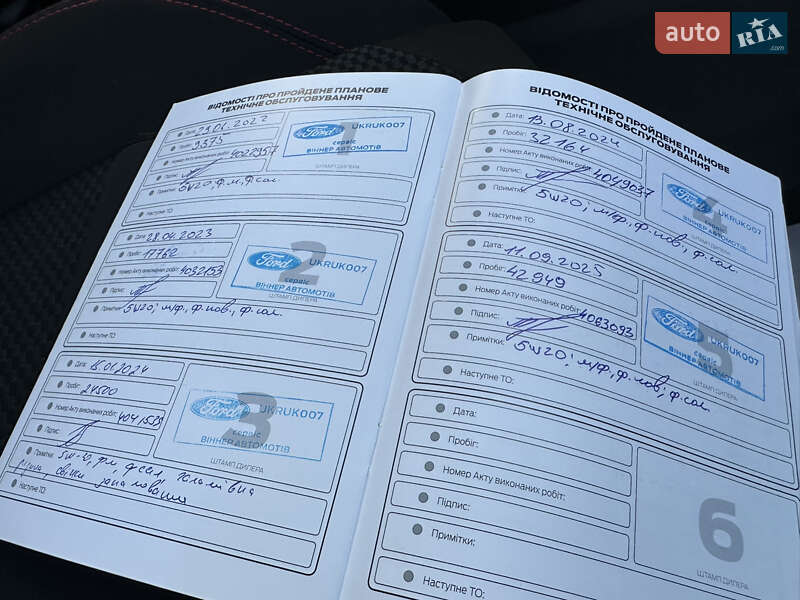 auto RIA .com
ВІДОМОСТІ ПРО ПРОЙДЕНЕ ПЛАНОВЕ
ТЕХНІЧНЕ ОБСЛУГОВУВАННЯ
Дата:
Пробіг: 9575
Номер Акту виконаних робіт: 4022957
Підпис:
Примітки: 5w20, ф.м, ф.сал.
Наступне ТО:
1
Ford UKRUK007
сервіс
ВІННЕР АВТОМОТІВ
ШТАМП ДИЛЕРА
Дата: 28.04.2023
Пробіг: 17762
Номер Акту виконаних робіт: 4032153
Підпис:
Примітки: 5w20; м/ф., ф.пов., ф.сал.
Наступне ТО:
2
Ford UKRUK007
сервіс
ВІННЕР АВТОМОТІВ
ШТАМП ДИЛЕРА
Дата: 18.01.2024
Пробіг: 24500
Номер Акту виконаних робіт:
Підпис:
Примітки: 5w-20, фм, ф сал гальмівна
рідина свічки запалювання
Наступне ТО:
3
Ford UKRUK007
сервіс
ВІННЕР АВТОМОТІВ
ШТАМП ДИЛЕРА
ВІДОМОСТІ ПРО ПРОЙДЕНЕ ПЛАНОВЕ
ТЕХНІЧНЕ ОБСЛУГОВУВАННЯ
Дата: 13.08.2024
Пробіг: 32164
Номер Акту виконаних робіт: 4049037
Підпис:
Примітки: 5w20; м/ф., ф.пов., ф.сал.
Наступне ТО:
4
Ford UKRUK007
сервіс
ВІННЕР АВТОМОТІВ
ШТАМП ДИЛЕРА
Дата: 11.09.2025
Пробіг: 42949
Номер Акту виконаних робіт: 4063093
Підпис:
Примітки: 5w20; м/ф, ф.пов; ф.сал.
Наступне ТО:
5
Ford UKRUK007
сервіс
ВІННЕР АВТОМОТІВ
ШТАМП ДИЛЕРА
Дата:
Пробіг:
Номер Акту виконаних робіт:
Підпис:
Примітки:
Наступне ТО:
6
ШТАМП ДИЛЕРА